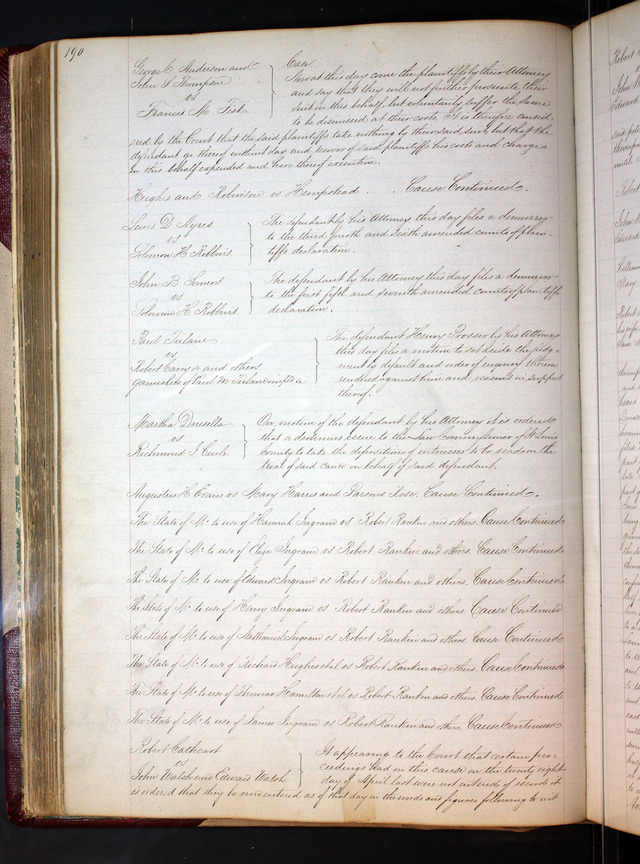 190
George C. Anderson and
John S. Thompson
vs
Francis M. Fist
Case
Now at this day come the plaintiffs by their Attorney
and say that they will not further prosecute their
suit in this behalf, but voluntarily suffer the same
to be dismissed at their costs. It is therefore consid-
ered by the Court that the said plaintiffs take nothing by their said suit, but that the
defendant go thereof without day and recover of said plaintiffs his costs and charges
in this behalf expended and have thereof execution.
Hughes and Robinson vs Hempstead. Cause Continued.
Lewis D. Ayres
vs
Solomon H. Robbins
The defendant by his Attorney this day files a demurrer
to the third fourth and sixth amended counts of plain-
tiffs declaration.
John B.
vs
Solomon H. Robbins
The defendant by his Attorney this day files a demurrer
to the first fifth and seventh amended counts of plaintiffs
declaration.
Paul Tulane
vs
Robert Cary and others
garnishees of Paul W. Tulane
The defendant Henry Prosser by his Attorney
this day files a motion to set aside the judg-
ment by default and order of inquiry herein
rendered against him and reasons in support
thereof.
Martha Drusella
vs
Richmond J. Curle
On motion of the defendant by his Attorney it is ordered
that a dedimus issue to the Law Commissioner of St Louis
County to take the depositions of witnesses to be read on the
trial of said cause in behalf of said defendant.
Augustus H. Evans vs Mary Harris and Parsons Rose. Cause Continued.
The State of Mo to use of Hannah Ingram vs Robert Rankin and others. Cause Continued
The State of Mo to use of Eliza Ingram vs Robert Rankin and others. Cause Continued.
The State of Mo to use of Edward Ingram vs Robert Rankin and others. Cause Continued
The State of Mo to use of Henry Ingram vs Robert Rankin and others. Cause Continued
The State of Mo to use of Nathaniel Ingram vs Robert Rankin and others. Cause Continued
The State of Mo to use of Richard Hughes et al vs Robert Rankin and others. Cause Continued
The State of Mo to use of Thomas Hamilton et al vs Robert Rankin and others. Cause Continued
The State of Mo to use of James Ingram vs Robert Rankin and others. Cause Continued
Robert Cathcart
vs
John Walsh and Edward Walsh
It appearing to the Court that certain pro-
ceedings had in this cause on the twenty eight
day of April last were not entered of record it
is ordered that they be now entered as of that day in the words and figures following to wit